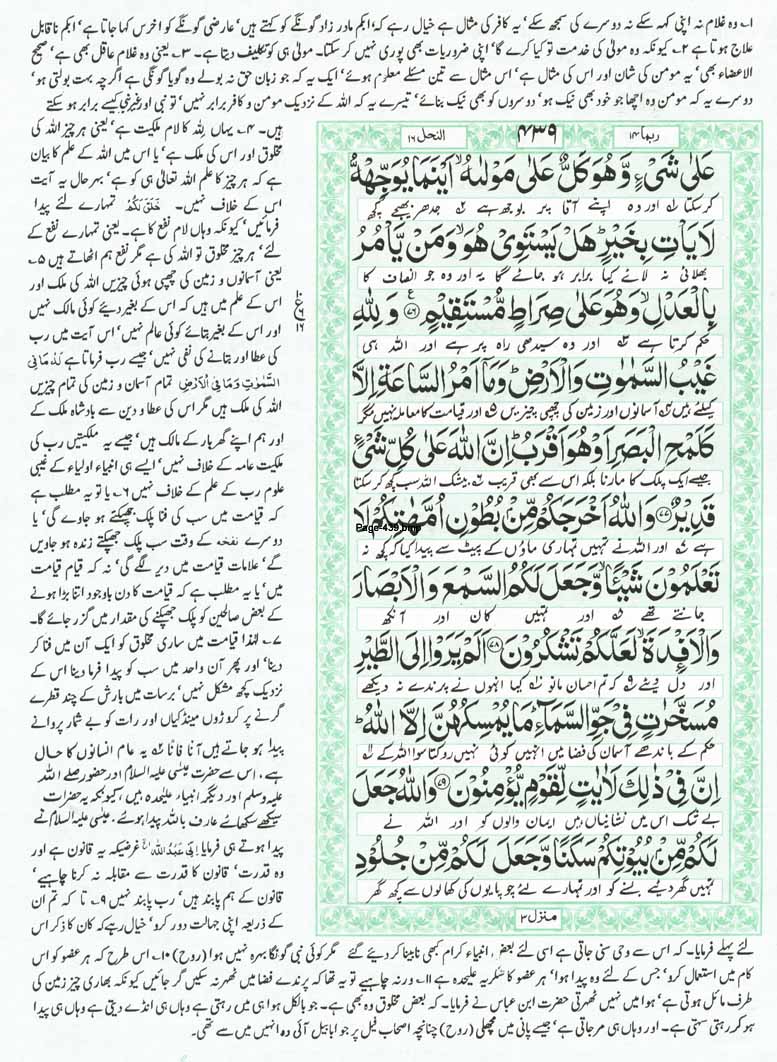 ۱۔ وہ غلام نہ اپنی کہہ سکے نہ دوسرے کی سمجھ سکے' یہ کافر کی مثال ہے خیال رہے کہ' ابکم مادر زاد گونگے کو کہتے ہیں' عارضی گونگے کو اخرس کہا جاتا ہے' ابکم ناقابل
علاج ہوتا ہے ۲۔ کیونکہ وہ مولیٰ کی خدمت تو کیا کرے گا' اپنی ضروریات بھی پوری نہیں کر سکتا۔ مولیٰ ہی کو تکلیف دیتا ہے۔ ۳۔ یعنی وہ غلام عاقل بھی ہے' صحیح
الاعضاء بھی' یہ مومن کی شان اور اس کی مثال ہے' اس مثال سے تین مسئلے معلوم ہوئے' ایک یہ کہ جو زبان حق نہ بولے وہ گویا گونگی ہے اگرچہ بہت بولتی ہو'
دوسرے یہ کہ مومن وہ اچھا جو خود بھی نیک ہو' دوسروں کو بھی نیک بنائے' تیسرے یہ کہ اللہ کے نزدیک مومن و کافر برابر نہیں' تو نبی اور غیر نبی کیسے برابر ہو سکتے
ربما ۱۴ ۴۳۹ النحل ۱۶
عَلٰی شَیْءٍ وَّهُوَ كَلٌّ عَلٰی مَوْلٰىهُ اَیْنَمَا یُوَجِّهْهُّ
کر سکتا اور وہ اپنے آقا پر بوجھ ہے جدھر بھیجے کچھ
لَا یَاْتِ بِخَیْرٍ هَلْ یَسْتَوِیْ هُوَ وَ مَنْ یَّاْمُرُ
بھلائی نہ لائے کیا برابر ہو جائے گا یہ اور وہ جو انصاف کا
بِالْعَدْلِ وَهُوَ عَلٰی صِرَاطٍ مُّسْتَقِیْمٍ ﴿۷۶﴾ وَ لِلّٰهِ
حکم کرتا ہے اور وہ سیدھی راہ پر ہے اور اللہ ہی
غَیْبُ السَّمٰوٰتِ وَالْاَرْضِ وَمَاۤ اَمْرُ السَّاعَةِ اِلَّا
کیلئے ہیں آسمانوں اور زمین کی چھپی چیزیں اور قیامت کا معاملہ نہیں مگر
كَلَمْحِ الْبَصَرِ اَوْ هُوَ اَقْرَبُ اِنَّ اللّٰهَ عَلٰی كُلِّ شَیْءٍ
جیسے ایک پلک کا مارنا بلکہ اس سے بھی قریب بیشک اللہ سب کچھ کر سکتا
قَدِیْرٌ ﴿۷۷﴾ وَاللّٰهُ اَخْرَجَكُمْ مِّنْۢ بُطُوْنِ اُمَّهٰتِكُمْ لَا
Page-439.bmp
ہے اور اللہ نے تمہیں تمہاری ماؤں کے پیٹ سے پیدا کیا کہ کچھ نہ
تَعْلَمُوْنَ شَیْئًا وَّجَعَلَ لَكُمُ السَّمْعَ وَالْاَبْصَارَ
جانتے تھے اور تمہیں کان اور آنکھ
وَالْاَفْـِٕدَةَ لَعَلَّكُمْ تَشْكُرُوْنَ ﴿۷۸﴾ اَلَمْ یَرَوْا اِلَی الطَّیْرِ
اور دل دیئے کہ تم احسان مانو کیا انہوں نے پرندے نہ دیکھے
مُسَخَّرٰتٍ فِیْ جَوِّ السَّمَآءِ مَا یُمْسِكُهُنَّ اِلَّا اللّٰهُ
حکم کے باندھے آسمان کی فضا میں انہیں کوئی نہیں روکتا سوا اللہ کے
اِنَّ فِیْ ذٰلِكَ لَاٰیٰتٍ لِّقَوْمٍ یُّؤْمِنُوْنَ ﴿۷۹﴾ وَاللّٰهُ جَعَلَ
بے شک اس میں نشانیاں ہیں ایمان والوں کو اور اللہ نے
لَكُمْ مِّنْۢ بُیُوْتِكُمْ سَكَنًا وَّجَعَلَ لَكُمْ مِّنْ جُلُوْدِ
تمہیں گھر دیئے بسنے کو اور تمہارے لئے چوپایوں کی کھالوں سے کچھ گھر
منزل ۳
ہیں۔ ۴۔ یہاں للہ کا لام ملکیت ہے' یعنی ہر چیز اللہ کی
مخلوق اور اس کی ملک ہے' یا اس میں اللہ کے علم کا بیان
ہے کہ ہر چیز کا علم اللہ تعالیٰ ہی کو ہے' بہر حال یہ آیت
اس کے خلاف نہیں۔ خَلَقَ لَكُمْ تمہارے لئے پیدا
فرمائیں' کیونکہ وہاں لام نفع کا ہے۔ یعنی تمہارے نفع کے
لئے' ہر چیز مخلوق تو اللہ کی ہے مگر نفع ہم اٹھاتے ہیں ۵۔
یعنی آسمانوں و زمین کی چھپی ہوئی چیزیں اللہ کی ملک اور
اس کے علم میں ہیں کہ اس کے بغیر دیئے کوئی مالک نہیں
اور اس کے بغیر بتائے کوئی عالم نہیں' اس آیت میں رب
کی عطا اور بتانے کی نفی نہیں' جیسے رب فرماتا ہے لَهٗ مَا فِی
السَّمٰوٰتِ وَمَا فِی الْاَرْضِ تمام آسمان و زمین کی تمام چیزیں
اللہ کی ملک ہیں مگر اس کی عطا و دین سے بادشاہ ملک کے
اور ہم اپنے گھر بار کے مالک ہیں' جیسے یہ ملکیتیں رب کی
ملکیت عامہ کے خلاف نہیں' ایسے ہی انبیاء اولیاء کے غیبی
علوم رب کے علم کے خلاف نہیں ۶۔ یا تو یہ مطلب ہے
کہ قیامت میں سب کی فنا پلک جھپکتے ہو جاوے گی' یا
دوسرے نفخہ کے وقت سب پلک جھپکتے زندہ ہو جاویں
گے' علامات قیامت میں دیر لگے گی' نہ کہ قیام قیامت
میں' یا یہ مطلب ہے کہ قیامت کا دن باوجود اتنا بڑا ہونے
کے بعض صالحین کو پلک جھپکنے کی مقدار میں گزر جائے گا۔
۷۔ لہٰذا قیامت میں ساری مخلوق کو ایک آن میں فنا کر
دینا' اور پھر آن واحد میں سب کو پیدا فرما دینا اس کے
نزدیک کچھ مشکل نہیں' برسات میں بارش کے چند قطرے
گرنے پر کروڑوں مینڈکیاں اور رات کو بے شمار پروانے
پیدا ہو جاتے ہیں آنا فانا ۸۔ یہ عام انسانوں کا حال
ہے، اس سے حضرت عیسیٰ علیہ السلام اور حضور صلے اللہ
علیہ وسلم اور دیگر انبیاء علیحدہ ہیں، کیونکہ یہ حضرات
سیکھے سکھائے عارف باللہ پیدا ہوئے، عیسیٰ علیہ السلام نے
پیدا ہوتے ہی فرمایا اِنِّیْ عَبْدُ اللّٰہ غرضیکہ یہ قانون ہے اور
وہ قدرت' قانون کا قدرت سے مقابلہ نہ کرنا چاہیے'
قانون کے ہم پابند ہیں' رب پابند نہیں ۹۔ تا کہ تم ان
کے ذریعہ اپنی جہالت دور کرو' خیال رہے کہ کان کا ذکر اس
لئے پہلے فرمایا۔ کہ اس سے وحی سنی جاتی ہے اسی لئے بعض، انبیاء کرام کبھی نابینا کر دیئے گئے مگر کوئی نبی گونگا بہرہ نہیں ہوا (روح) ۱۰۔ اس طرح کہ ہر عضو کو اس
کام میں استعمال کرو' جس کے لئے وہ پیدا ہوا' ہر عضو کا شکریہ علیحدہ ہے ۱۱۔ ورنہ چاہیے تو یہ تھا کہ پرندے فضا میں ٹھہر نہ سکیں گر جائیں کیونکہ بھاری چیز زمین کی
طرف مائل ہوتی ہے' ہوا میں نہیں ٹھہرتی حضرت ابن عباس نے فرمایا۔ کہ بعض مخلوق وہ بھی ہے۔ جو بالکل ہوا ہی میں رہتی ہے وہاں ہی انڈے دیتی ہے وہاں ہی پیدا
ہو کر رہتی سہتی ہے۔ اور وہاں ہی مر جاتی ہے' جیسے پانی میں مچھلی (روح) چنانچہ اصحاب فیل پر جو ابابیل آئی وہ انہیں میں سے تھی۔